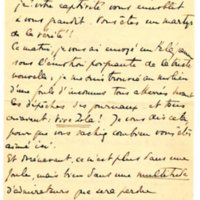 je! votre captivité vous ennoblit
vous grandit. Vous êtes un martyr
de la vérité!!
Ce matin, je vous ai envoyé un
sous l'émotion poignante de la triste
nouvelle; je me suis trouvé au milieu
d'une foule d'inconnus tous
les dépêches des journaux et tous
criaient: Vive Zola! Je vous dis cela
pour que vous sachiez combien vous êtes
aimé ici.
Et désormais, ce n'est plus dans une
foule, mais bien dans une multitude
d'admirateurs que sera perdu